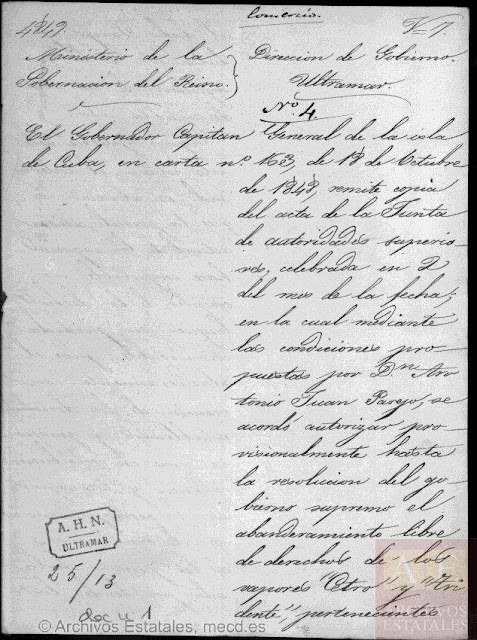 Comercio.
1849.
V= 7.
Ministerio de la
Gobernacion del Reino.
Direccion de Gobierno.
Ultramar.
Nº 4
El Gobernador Capitan General de la isla
de Cuba, en carta n.º 163, de 18 de Octubre
de 1848, remite copia
del acta de la Junta
de autoridades superio-
res, celebrada en 2
del mes de la fecha;
en la cual mediante
las condiciones pro-
puestas por Dn An-
tonio Juan Parejo, se
acordó autorizar pro-
visionalmente hasta
la resolucion del go-
bierno supremo el
abanderamiento libre
de derechos de los
vapores "Cetro" y "Tri
dente", pertenecientes
A. H. N.
ULTRAMAR
25/13
doc u 1
© Archivos Estatales, mecd.es
ARCHIVOS
ESTATALES